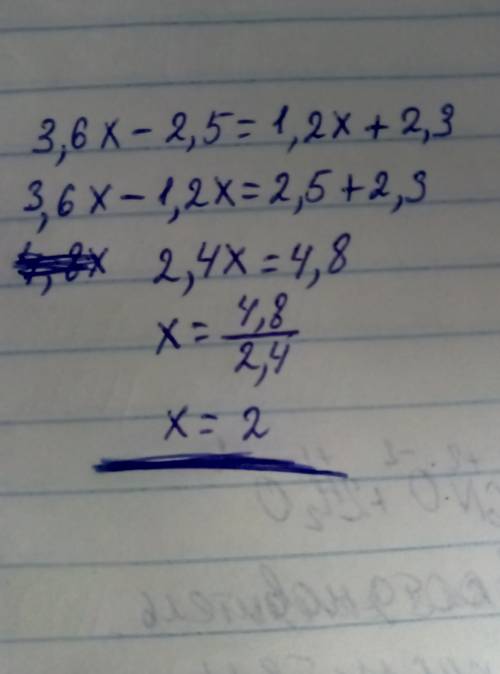 3,6x - 2,5 = 1,2x + 2,3
3,6x - 1,2x = 2,5 + 2,3
2,4x = 4,8
x = 4,8/2,4
x = 2